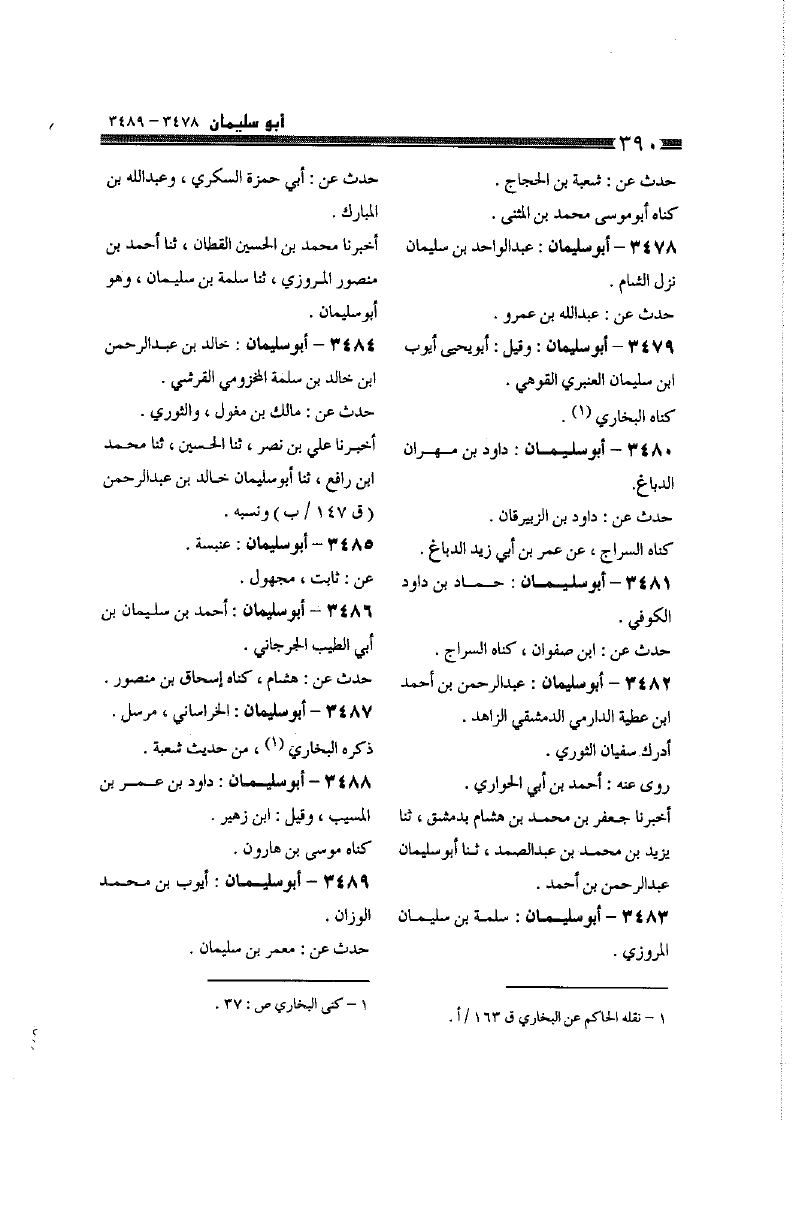 أبو سليمان ٣٤٧٨ – ٣٤٨٩
٣٩٠
حدث عن : شعبة بن الحجاج .
كناه أبوموسى محمد بن المثنى .
٣٤٧٨ – أبوسليمان : عبدالواحد بن سليمان
نزل الشام .
حدث عن : عبدالله بن عمرو .
٣٤٧٩ – أبوسليمان : وقيل : أبويحيى أيوب
ابن سليمان العنبري القوهي .
كناه البخاري (١) .
٣٤٨٠ – أبوسليمان : داود بن مهران
الدباغ.
حدث عن : داود بن الزبيرقان .
كناه السراج ، عن عمر بن أبي زيد الدباغ .
٣٤٨١ – أبوسليمان : حماد بن داود
الكوفي .
حدث عن : ابن صفوان ، كناه السراج .
٣٤٨٢ – أبوسليمان : عبدالرحمن بن أحمد
ابن عطية الدارمي الدمشقي الزاهد .
أدرك سفيان الثوري .
روى عنه : أحمد بن أبي الحواري .
أخبرنا جعفر بن محمد بن هشام بدمشق ، ثنا
يزيد بن محمد بن عبدالصمد ، ثنا أبوسليمان
عبدالرحمن بن أحمد .
٣٤٨٣ – أبوسليمان : سلمة بن سليمان
المروزي .
١ – نقله الحاكم عن البخاري ق ١٦٣ / أ .
حدث عن : أبي حمزة السكري ، وعبدالله بن
المبارك .
أخبرنا محمد بن الحسين القطان ، ثنا أحمد بن
منصور المروزي ، ثنا سلمة بن سليمان ، وهو
أبوسليمان .
٣٤٨٤ – أبوسليمان : خالد بن عبدالرحمن
ابن خالد بن سلمة المخزومي القرشي .
حدث عن : مالك بن مغول ، والثوري .
أخبرنا علي بن نصر ، ثنا الحسين ، ثنا محمد
ابن رافع ، ثنا أبوسليمان خالد بن عبدالرحمن
( ق ١٤٧ / ب ) ونسبه .
٣٤٨٥ – أبوسليمان : عنبسة .
عن : ثابت ، مجهول .
٣٤٨٦ – أبوسليمان : أحمد بن سليمان بن
أبي الطيب الجرجاني .
حدث عن : هشام ، كناه إسحاق بن منصور .
٣٤٨٧ – أبوسليمان : الخراساني ، مرسل .
ذكره البخاري (١) ، من حديث شعبة .
٣٤٨٨ – أبوسليمان : داود بن عمر بن
المسيب ، وقيل : ابن زهير .
كناه موسى بن هارون .
٣٤٨٩ – أبوسليمان : أيوب بن محمد
الوزان .
حدث عن : معمر بن سليمان .
١ – كنى البخاري ص : ٣٧ .